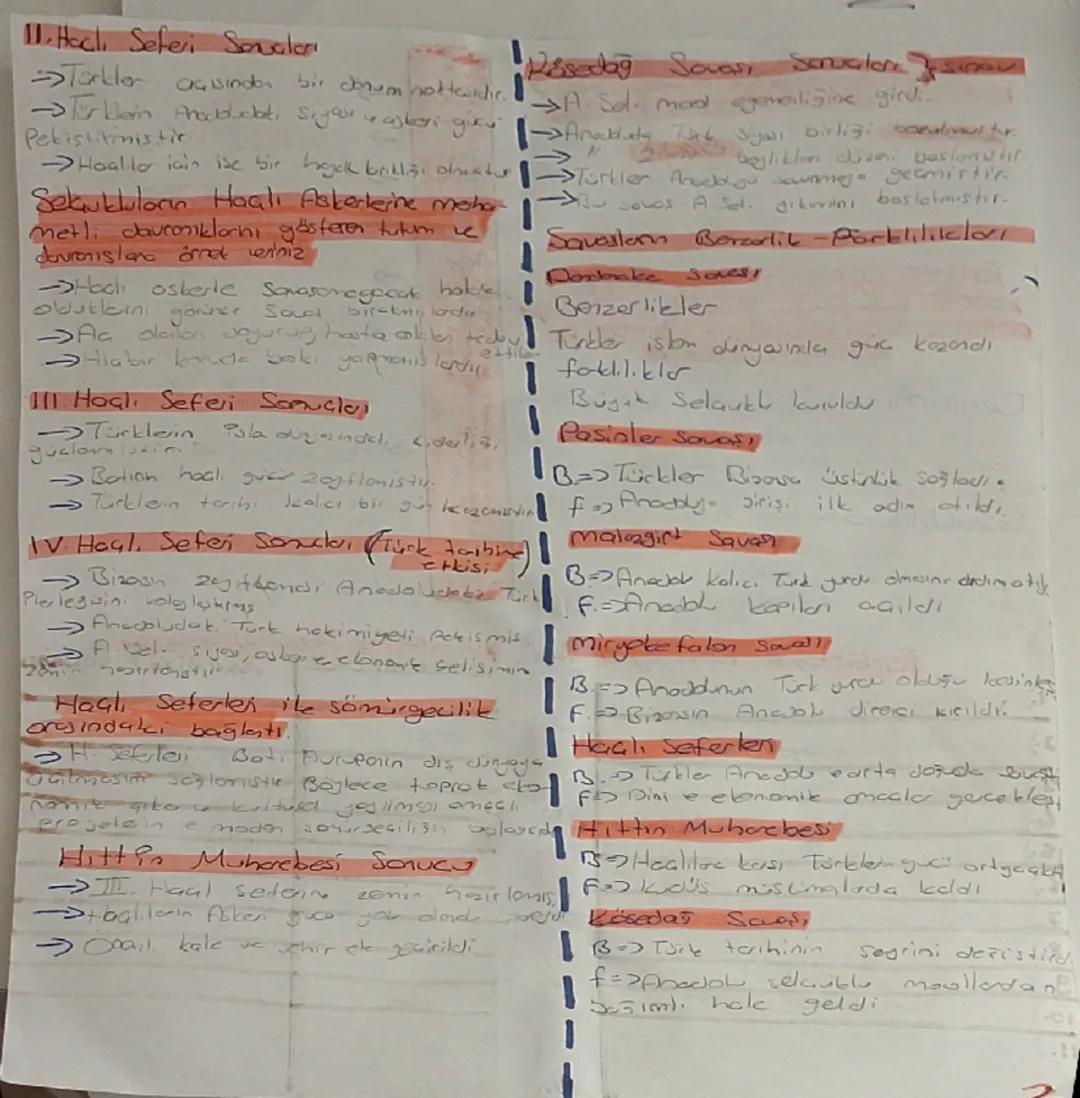 II. Haçlı Seferi Sonuçları
→ Türkler açısından bir dönüm noktasıdır.
→ Türklerin Anadoludaki siyasi ve askeri gücü
Pekiştirmiştir
→ Haçlılar için ise bir hayal kırıklığı olmuştur
Selçukluların Haçlı Askerlerine merha-
metli davranıklarnı gösteren tutum ve
davranışlara örnek veriniz
→ Haçlı askerle Savaşamayacak halde
olduklarını görünce savaşı bırakmışlardır
→ Aç olanları doyurup, hasta olanları tedavi
ettiler
→ Hiçbir konuda baskı yapmamışlardır
III. Haçlı Seferi Sonuçları
→ Türklerin İsla dünyasındaki liderliği
güçlenmiştir.
→ Batının haçlı gücü zayıflamıştır.
→ Türklerin tarihi kalıcı bir güç kazanmıştır
IV. Haçlı Seferi Sonuçları (Türk tarihine
etkisi)
→ Bizasın zayıflaması Anadoludaki Türk
→ Anadoludaki Türk hakimiyeti Pekişmiş.
→ A. Sel. siyasi, askeri ve ekonomik gelişimine
zemin hazırlamıştır
Haçlı Seferleri ile sömürgecilik
arasındaki bağlantı.
→ H. Seferleri Batı Avrupanın dış dünyaya
açılmasını sağlamıştır Böylece toprak eko-
nomik çıkar ve kültürel yayılması amaçlı
Hittin Muharebesi Sonucu
→ III. Haçlı seferine zemin hazırlamış
→ Haçlıların Askeri gücü yok olmadı
→ Önemli kale ve şehir ele geçirildi
Kösedağ Savaşı Sonuçları } sınav
→ A. Sel. mool egemenliğine girdi.
→ Anadoluda Türk Siyasi birliği bozulmuştur.
→ " beylikler düzeni başlamıştır
→ Türkler Anadoluyu savunmaya geçmiştir.
→ Bu savaş A Sel. yıkımını başlatmıştır.
Savaşların Benzerlik - Farklılıkları
Dandanakan Savaşı
Benzerlikler
Türkler islam dünyasında güç kazandı
farklılıklar
Büyük Selçuklu kuruldu
Pasinler Savaşı
B => Türkler Bizansa üstünlük sağladı.
f => Anadoluya girişi ilk adım atıldı.
Malazgirt Savaşı
B => Anadolu kalıcı Türk yurdu olmasına adım atıldı
f. => Anadolu kapıları açıldı
Miryokefalon Savaşı
B. => Anadolunun Türk yurdu olduğu kesinleş
f. => Bizansın Anadolu direnci kırıldı.
Haçlı Seferleri
B. => Türkler Anadolu ve orta doğuda savaştı
f => Dini ve ekonomik amaçlar gerçekleşti
Hittin Muharebesi
B => Haçlılara karşı Türklerin gücü
f => Kudüs müslimalarda kaldı
Kösedağ Savaşı
B => Türk tarihinin seyrini değiştirdi
f => Anadolu selçuklu moollardan
bağımlı hale geldi